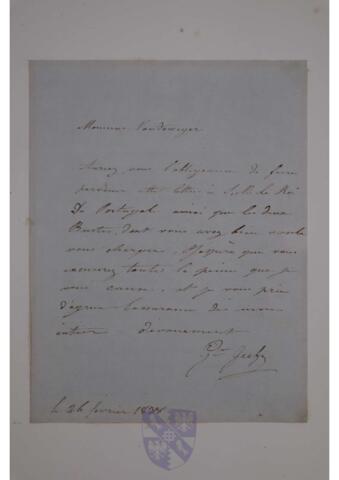 Monsieur Vandeweyer
Auriez vous l'obligeance de faire
parvenir cette lettre à S. M. le Roi
De Portugal ainsi que les deux
Bustes, dont vous avez bien voulu
vous charger. J'espère que vous
excuserez toutes la peine que je
vous cause, et je vous prie
d'agréer l'assurance de mon
entier devouement
le 26 février 18